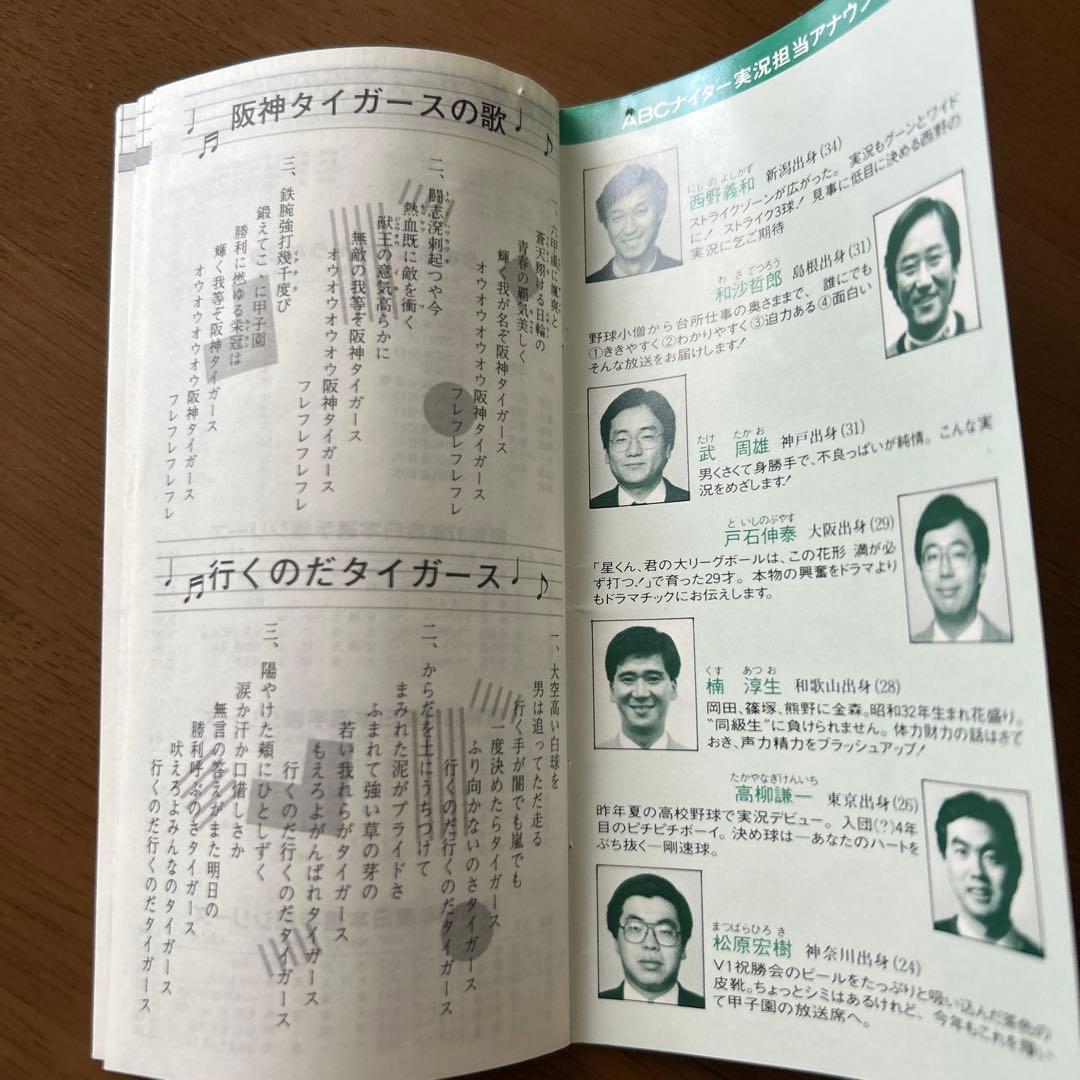 阪神タイガースの歌
一、六甲颪に颯爽と
蒼天翔ける日輪の
青春の覇気美しく
輝く我が名ぞ阪神タイガース
オウオウオウオウ阪神タイガース
フレフレフレフレ
二、闘志溌剌起つや今
熱血既に敵を衝く
獣王の意気高らかに
無敵の我等ぞ阪神タイガース
オウオウオウオウ阪神タイガース
フレフレフレフレ
三、鉄腕強打幾千度び
鍛えてこゝに甲子園
勝利に燃ゆる栄冠は
輝く我等ぞ阪神タイガース
オウオウオウオウ阪神タイガース
フレフレフレフレ
行くのだタイガース
一、大空高い白球を
男は追ってただ走る
行く手が闇でも嵐でも
一度決めたらタイガース
ふり向かないのさタイガース
行くのだ行くのだタイガース
二、からだを土にうちつけて
まみれた泥がプライドさ
ふまれて強い草の芽の
若い我れらがタイガース
もえろよがんばれタイガース
行くのだ行くのだタイガース
三、陽やけた頬にひとしずく
涙か汗か口惜しさか
無言の答えがまた明日の
勝利呼ぶのさタイガース
吠えろよみんなのタイガース
行くのだ行くのだタイガース
ABCナイター実況担当アナウン
にし の よしかず
西野義和 新潟出身(34)
ストライクゾーンが広がった。実況もグーンとワイド
に! ストライク3球! 見事に低目に決める西野の
実況に乞ご期待
わ さ てつろう
和沙哲郎 島根出身(31)
野球小僧から台所仕事の奥さままで、誰にでも
①ききやすく②わかりやすく③迫力ある④面白い
そんな放送をお届けします!
たけ たか お
武 周雄 神戸出身(31)
男くさくて身勝手で、不良っぱいが純情。こんな実
況をめざします!
と いしのぶやす
戸石伸泰 大阪出身(29)
「星くん、君の大リーグボールは、この花形 満が必
ず打つ!」で育った29才。本物の興奮をドラマより
もドラマチックにお伝えします。
くす あつ お
楠 淳生 和歌山出身(28)
岡田、篠塚、熊野に金森。昭和32年生まれ花盛り。
“同級生”に負けられません。体力財力の話はさて
おき、声力精力をブラッシュアップ!
たかやなぎけんいち
高柳謙一 東京出身(26)
昨年夏の高校野球で実況デビュー。入団(?)4年
目のピチピチボーイ。決め球は―あなたのハートを
ぶち抜く―剛速球。
まつばらひろ き
松原宏樹 神奈川出身(24)
V1祝勝会のビールをたっぷりと吸い込んだ茶色の
皮靴。ちょっとシミはあるけれど、今年もこれを履い
て甲子園の放送席へ。